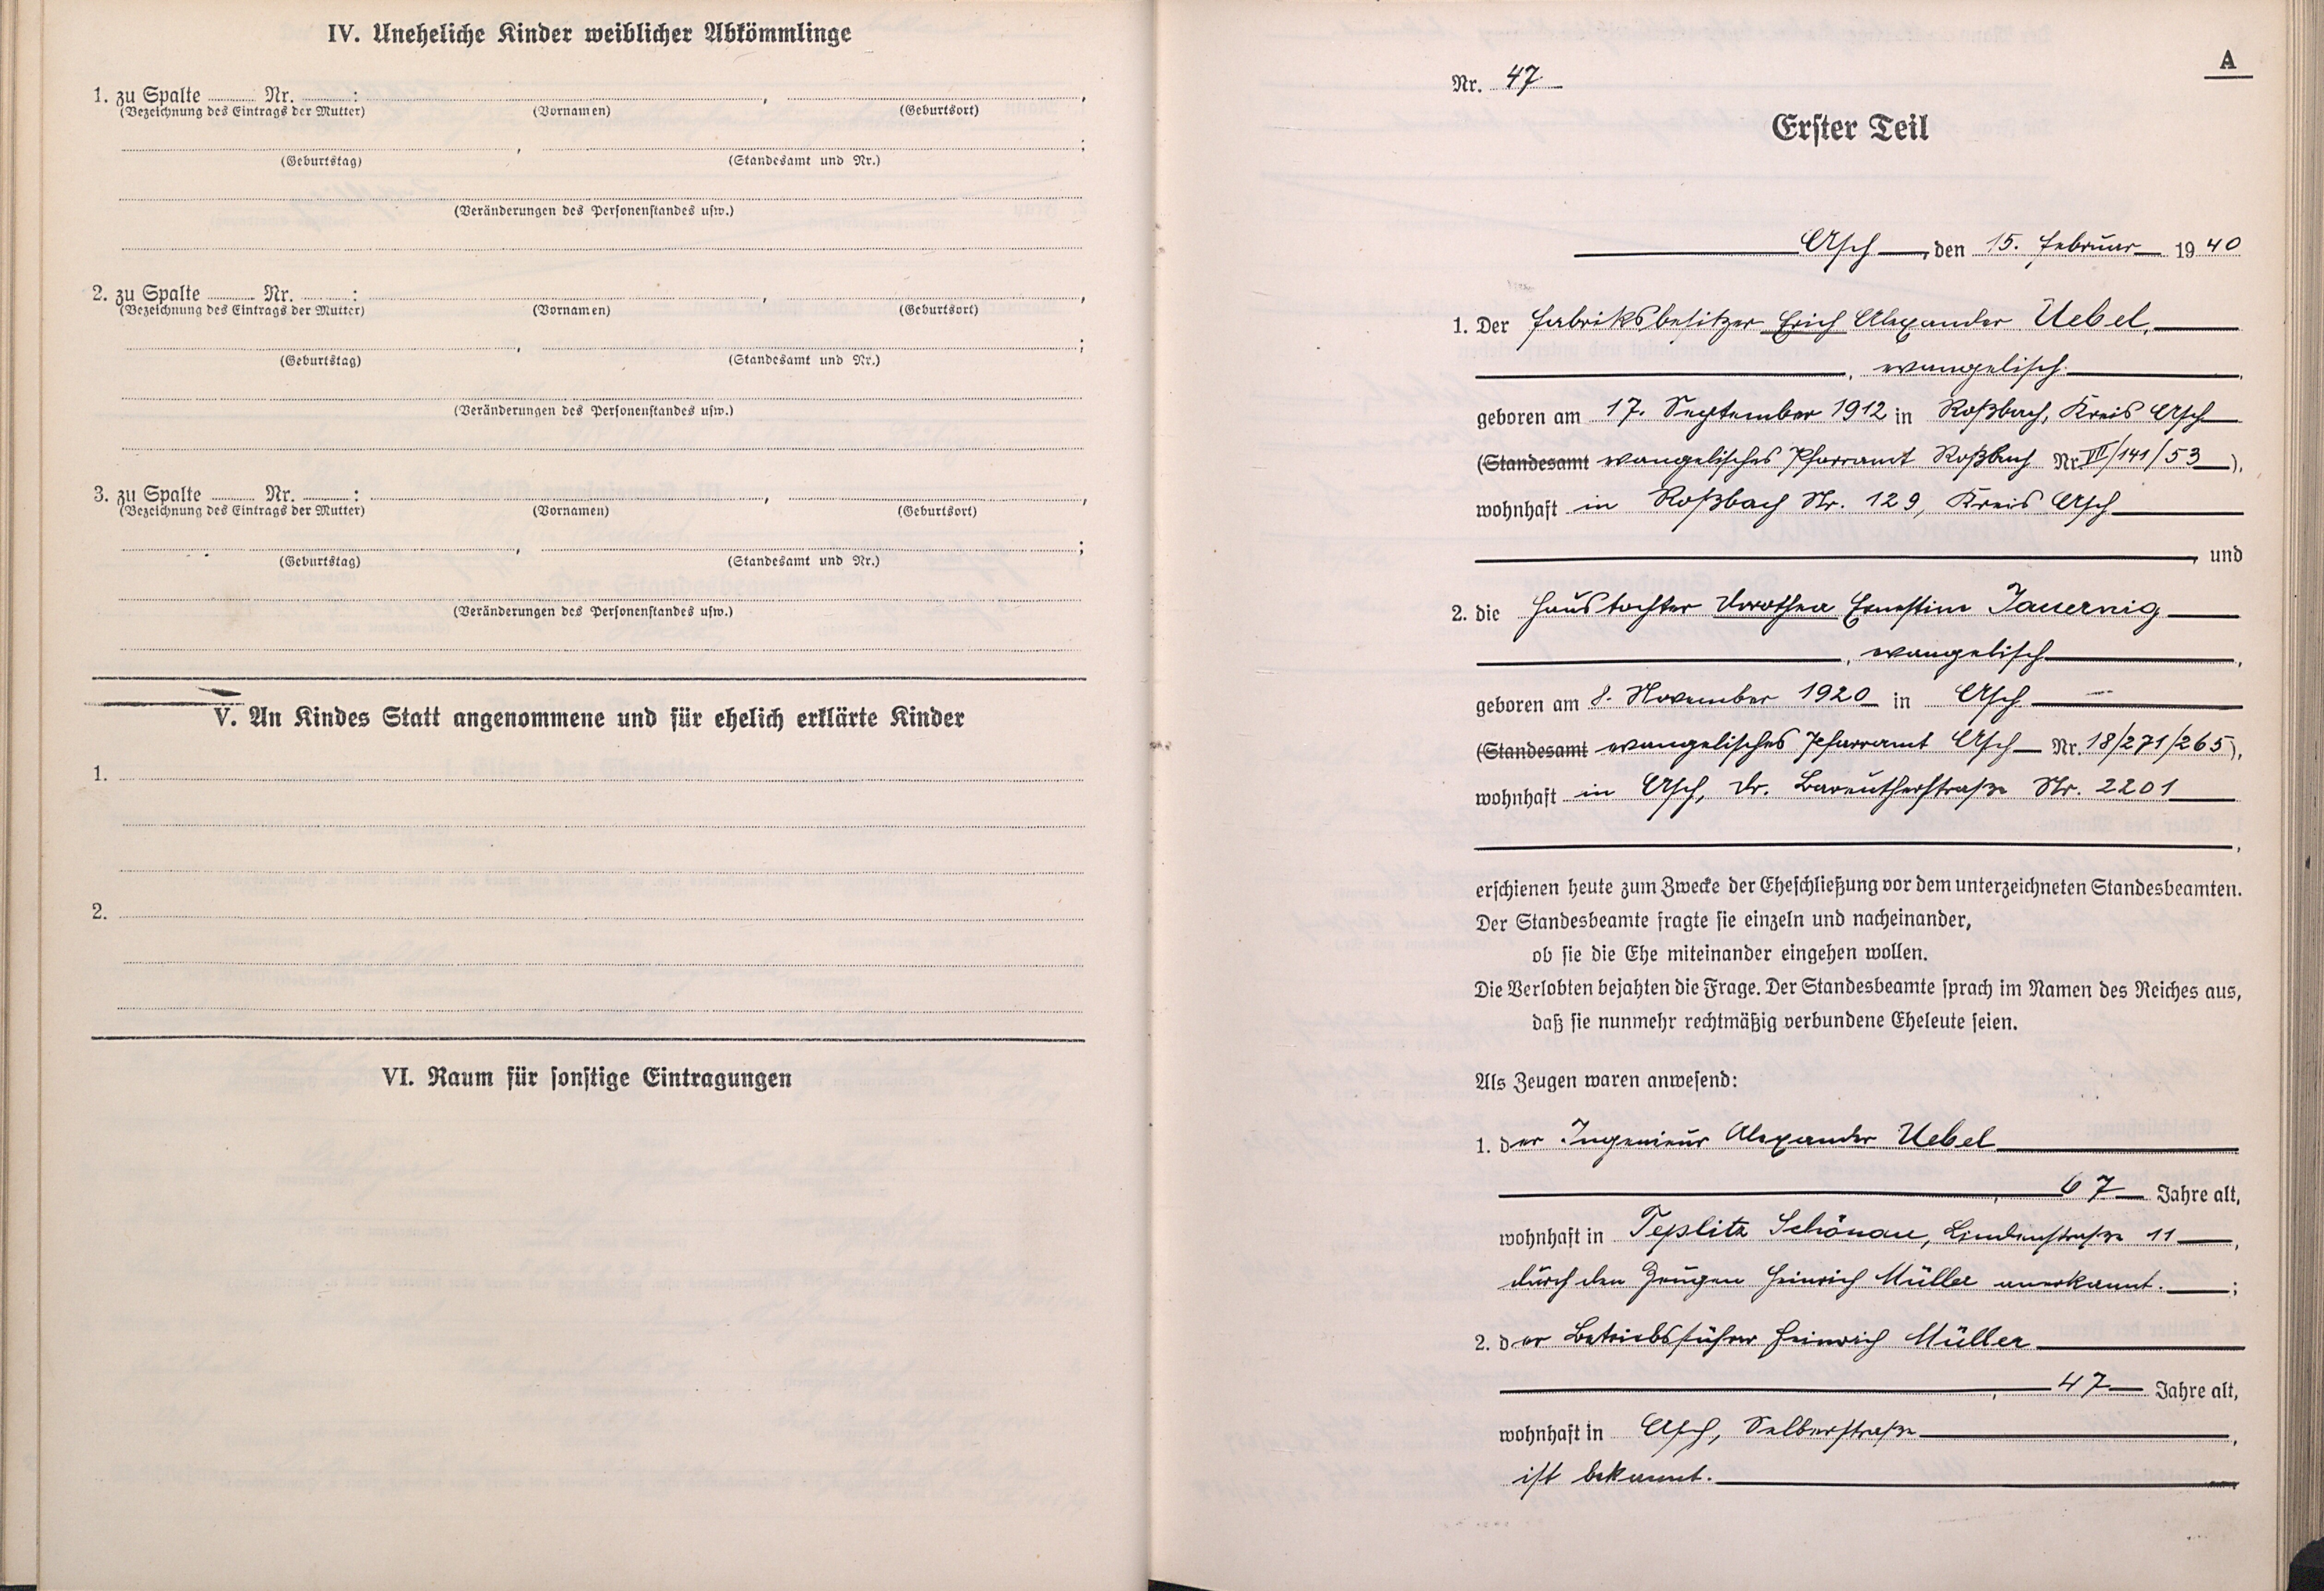 IV. Uneheliche Kinder weiblicher Abkömmlinge
1. zu Spalte Nr. : , ,
(Bezeichnung des Eintrags der Mutter) (Vornamen) (Geburtsort)
, ;
(Geburtstag) (Standesamt und Nr.)
(Veränderungen des Personenstandes usw.)
2. zu Spalte Nr. : , ,
(Bezeichnung des Eintrags der Mutter) (Vornamen) (Geburtsort)
, ;
(Geburtstag) (Standesamt und Nr.)
(Veränderungen des Personenstandes usw.)
3. zu Spalte Nr. : , ,
(Bezeichnung des Eintrags der Mutter) (Vornamen) (Geburtsort)
, ;
(Geburtstag) (Standesamt und Nr.)
(Veränderungen des Personenstandes usw.)
V. An Kindes Statt angenommene und für ehelich erklärte Kinder
1.
2.
VI. Raum für sonstige Eintragungen
A
Nr. 47
Erster Teil
Asch, den 15. Februar 1940
1. Der Fabriksbesitzer Erich Alexander Uebel,
, evangelisch,
geboren am 17. September 1912 in Roßbach, Kreis Asch
(Standesamt evangelisches Pfarramt Roßbach Nr. VII/141/53),
wohnhaft in Roßbach Nr. 129, Kreis Asch
, und
2. die Haustochter Dorothea Ernestine Jauernig
, evangelisch,
geboren am 8. November 1920 in Asch
(Standesamt evangelisches Pfarramt Asch Nr. 18/271/265),
wohnhaft in Asch, Dr. Bareutherstraße Nr. 2201
,
erschienen heute zum Zwecke der Eheschließung vor dem unterzeichneten Standesbeamten.
Der Standesbeamte fragte sie einzeln und nacheinander,
ob sie die Ehe miteinander eingehen wollen.
Die Verlobten bejahten die Frage. Der Standesbeamte sprach im Namen des Reiches aus,
daß sie nunmehr rechtmäßig verbundene Eheleute seien.
Als Zeugen waren anwesend:
1. der Ingenieur Alexander Uebel
, 67 Jahre alt,
wohnhaft in Teplitz Schönau, Lindenstraße 11,
durch den Zeugen Heinrich Müller anerkannt. ;
2. der Betriebsführer Heinrich Müller
, 47 Jahre alt,
wohnhaft in Asch, Selberstraße,
ist bekannt.